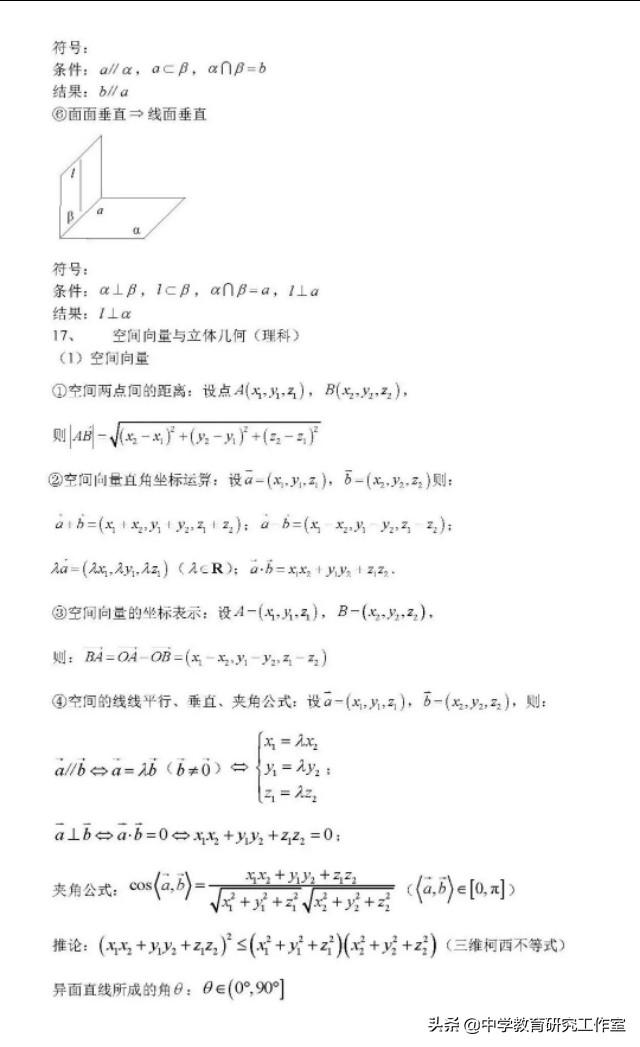 符号:
条件: a//α, a⊂β, α∩β=b
结果: b//a
⑥面面垂直⇒线面垂直
l
β
a
α
符号:
条件: α⊥β, l⊂β, α∩β=a, l⊥a
结果: l⊥α
17、 空间向量与立体几何（理科）
（1）空间向量
①空间两点间的距离: 设点A(x₁,y₁,z₁), B(x₂,y₂,z₂),
则|AB|=√((x₂-x₁)²+(y₂-y₁)²+(z₂-z₁)²)
②空间向量直角坐标运算: 设a⃗=(x₁,y₁,z₁), b⃗=(x₂,y₂,z₂)则:
a⃗+b⃗=(x₁+x₂,y₁+y₂,z₁+z₂); a⃗-b⃗=(x₁-x₂,y₁-y₂,z₁-z₂);
λa⃗=(λx₁,λy₁,λz₁)（λ∈R）; a⃗·b⃗=x₁x₂+y₁y₂+z₁z₂.
③空间向量的坐标表示: 设A=(x₁,y₁,z₁), B=(x₂,y₂,z₂),
则: BA⃗=OA⃗-OB⃗=(x₁-x₂,y₁-y₂,z₁-z₂)
④空间的线线平行、垂直、夹角公式: 设a⃗=(x₁,y₁,z₁), b⃗=(x₂,y₂,z₂), 则:
a⃗//b⃗⇔a⃗=λb⃗（b⃗≠0⃗）⇔{x₁=λx₂
y₁=λy₂;
z₁=λz₂
a⃗⊥b⃗⇔a⃗·b⃗=0⇔x₁x₂+y₁y₂+z₁z₂=0;
夹角公式: cos⟨a⃗,b⃗⟩=(x₁x₂+y₁y₂+z₁z₂)/(√(x₁²+y₁²+z₁²)√(x₂²+y₂²+z₂²))（⟨a⃗,b⃗⟩∈[0,π]）
推论: (x₁x₂+y₁y₂+z₁z₂)²≤(x₁²+y₁²+z₁²)(x₂²+y₂²+z₂²)（三维柯西不等式）
异面直线所成的角θ: θ∈(0°,90°]
头条 @中学教育研究工作室